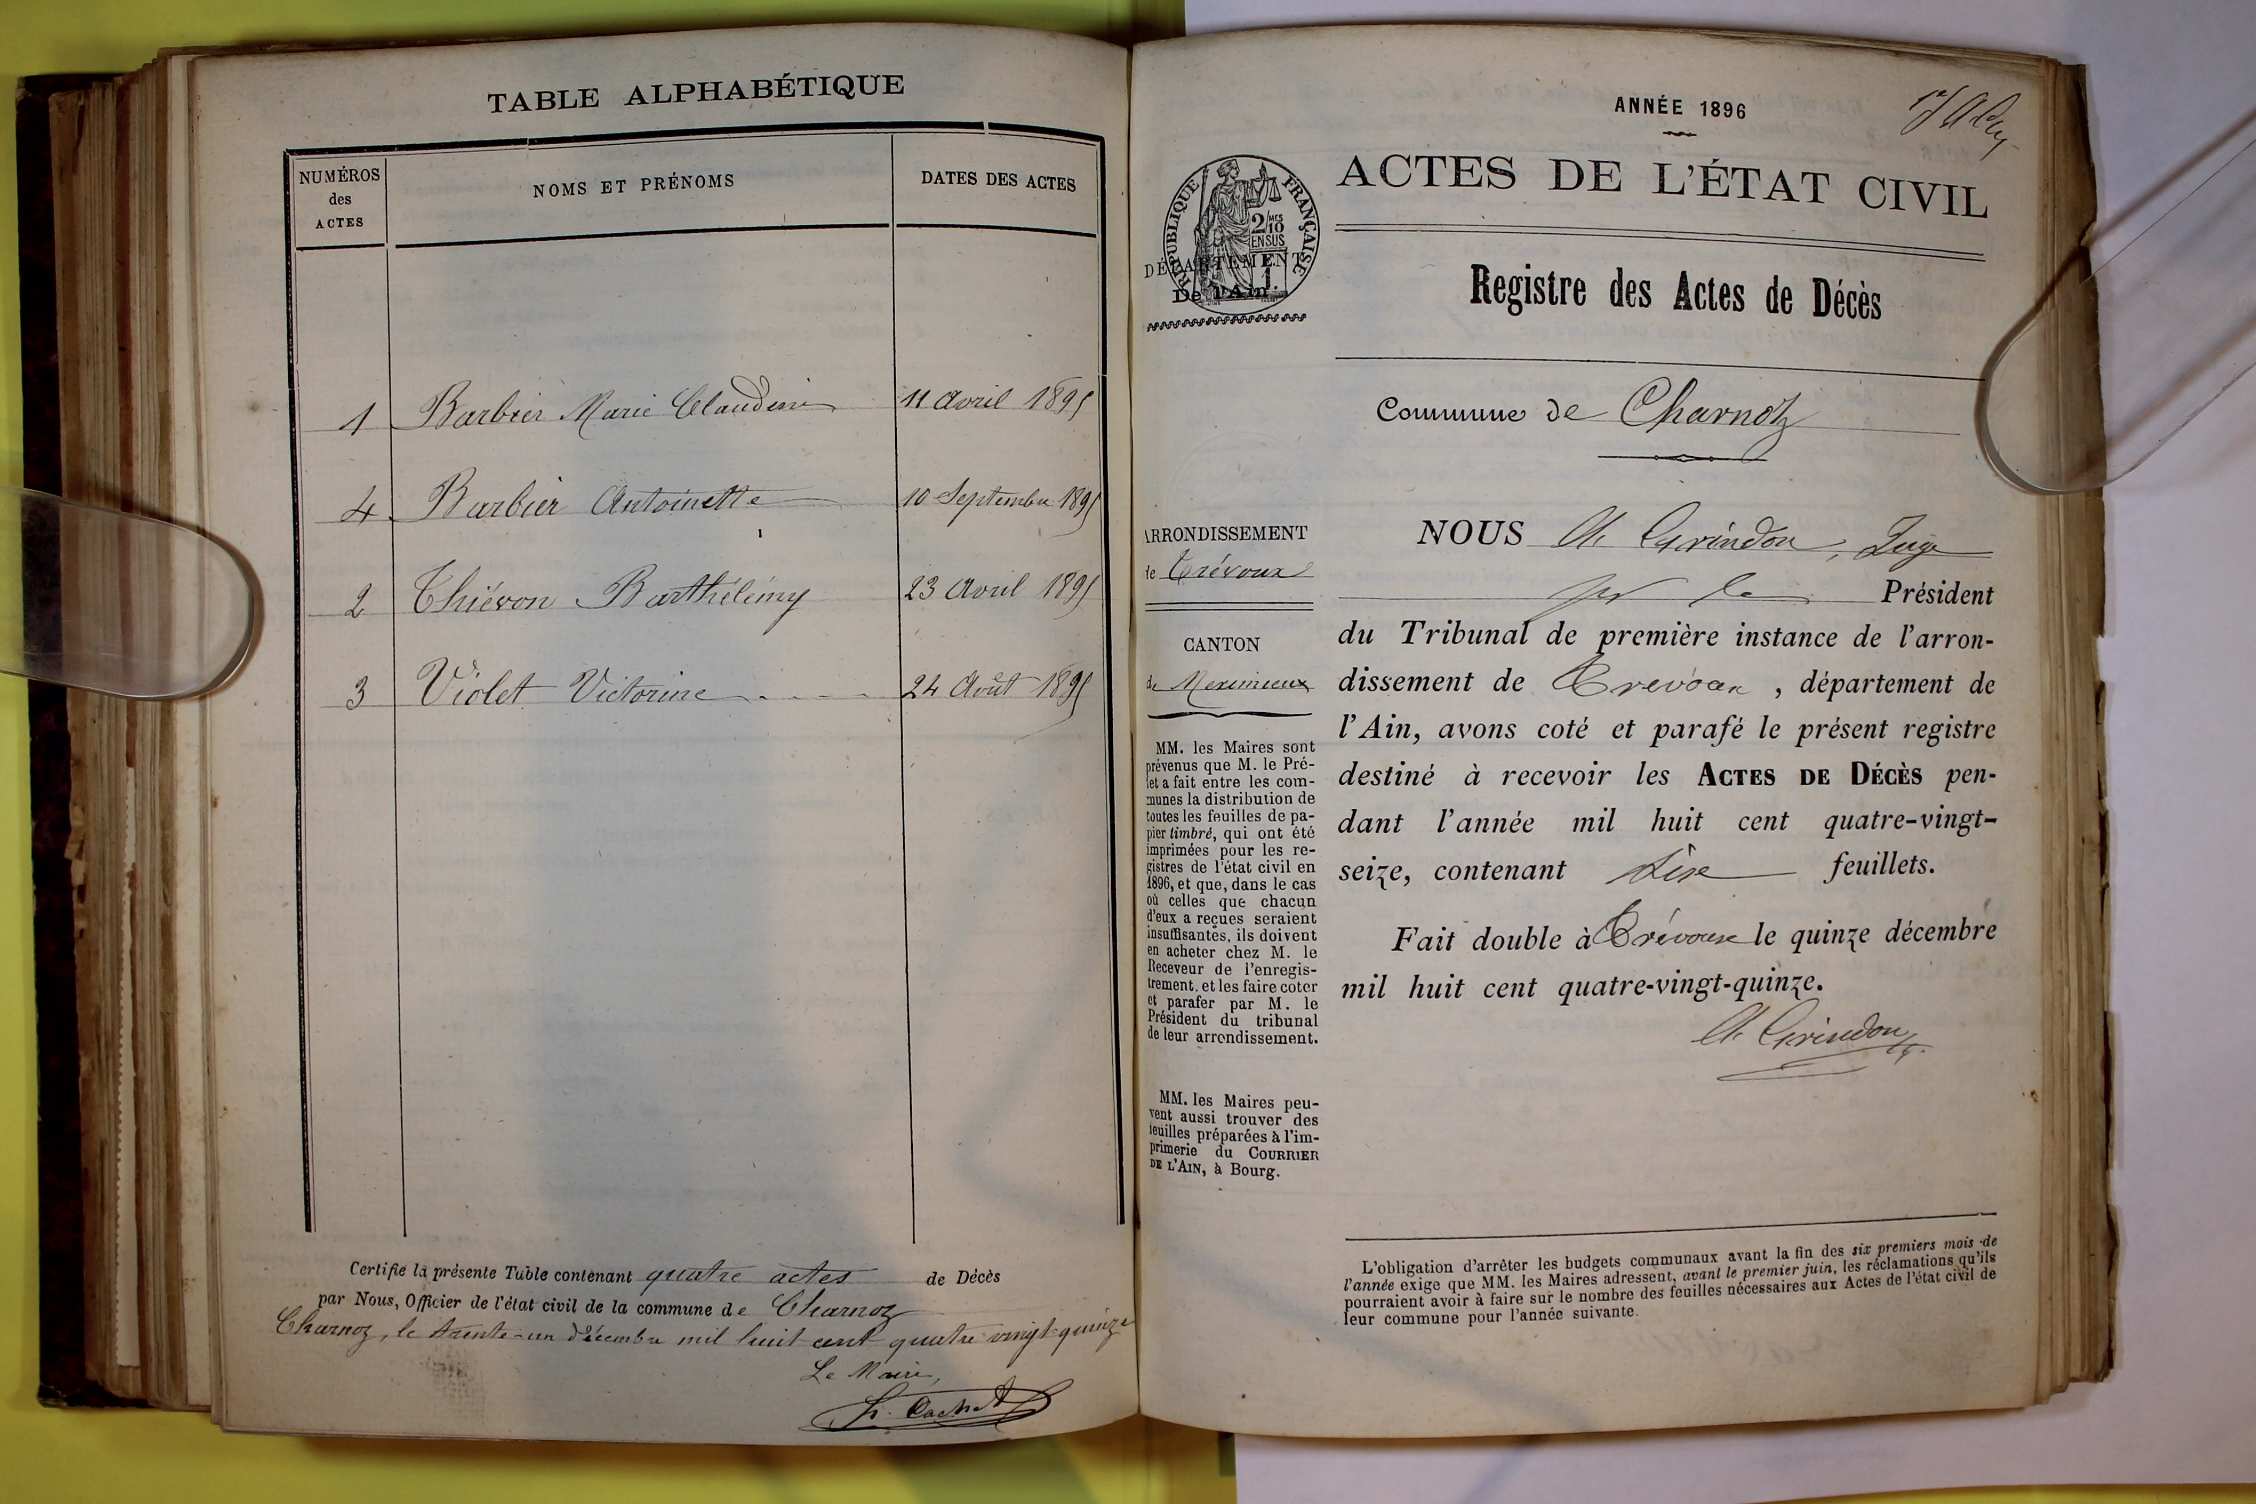 TABLE ALPHABÉTIQUE
NUMÉROS des ACTES
NOMS ET PRÉNOMS
DATES DES ACTES
1 Barbier Marie Claudine 11 Avril 1895
4 Barbier Antoinette 10 Septembre 1895
2 Thiévon Barthélémy 23 Avril 1895
3 Violet Victorine 24 Août 1895
Certifie la présente Table contenant quatre actes de Décès
par Nous, Officier de l'état civil de la commune de Charnoz
Charnoz, le trente-un décembre mil huit cent quatre vingt-quinze
Le Maire,
ANNÉE 1896
ACTES DE L'ÉTAT CIVIL
RÉPUBLIQUE FRANÇAISE
2/10 EN SUS
DÉPARTEMENT
De l'Ain.
Registre des Actes de Décès
Commune de Charnoz
ARRONDISSEMENT
de Trévoux
CANTON
de Meximieux
MM. les Maires sont
prévenus que M. le Pré-
fet a fait entre les com-
munes la distribution de
toutes les feuilles de pa-
pier timbré, qui ont été
imprimées pour les re-
gistres de l'état civil en
1896, et que, dans le cas
où celles que chacun
d'eux a reçues seraient
insuffisantes, ils doivent
en acheter chez M. le
Receveur de l'enregis-
trement, et les faire coter
et parafer par M. le
Président du tribunal
de leur arrondissement.
MM. les Maires peu-
vent aussi trouver des
feuilles préparées à l'im-
primerie du COURRIER
DE L'AIN, à Bourg.
NOUS Ch. Grindon, Juge
pr le Président
du Tribunal de première instance de l'arron-
dissement de Trevoux, département de
l'Ain, avons coté et parafé le présent registre
destiné à recevoir les ACTES DE DÉCÈS pen-
dant l'année mil huit cent quatre-vingt-
seize, contenant six feuillets.
Fait double à Trévoux le quinze décembre
mil huit cent quatre-vingt-quinze.
Ch. Grindon
L'obligation d'arrêter les budgets communaux avant la fin des six premiers mois de
l'année exige que MM. les Maires adressent, avant le premier juin, les réclamations qu'ils
pourraient avoir à faire sur le nombre des feuilles nécessaires aux Actes de l'état civil de
leur commune pour l'année suivante.